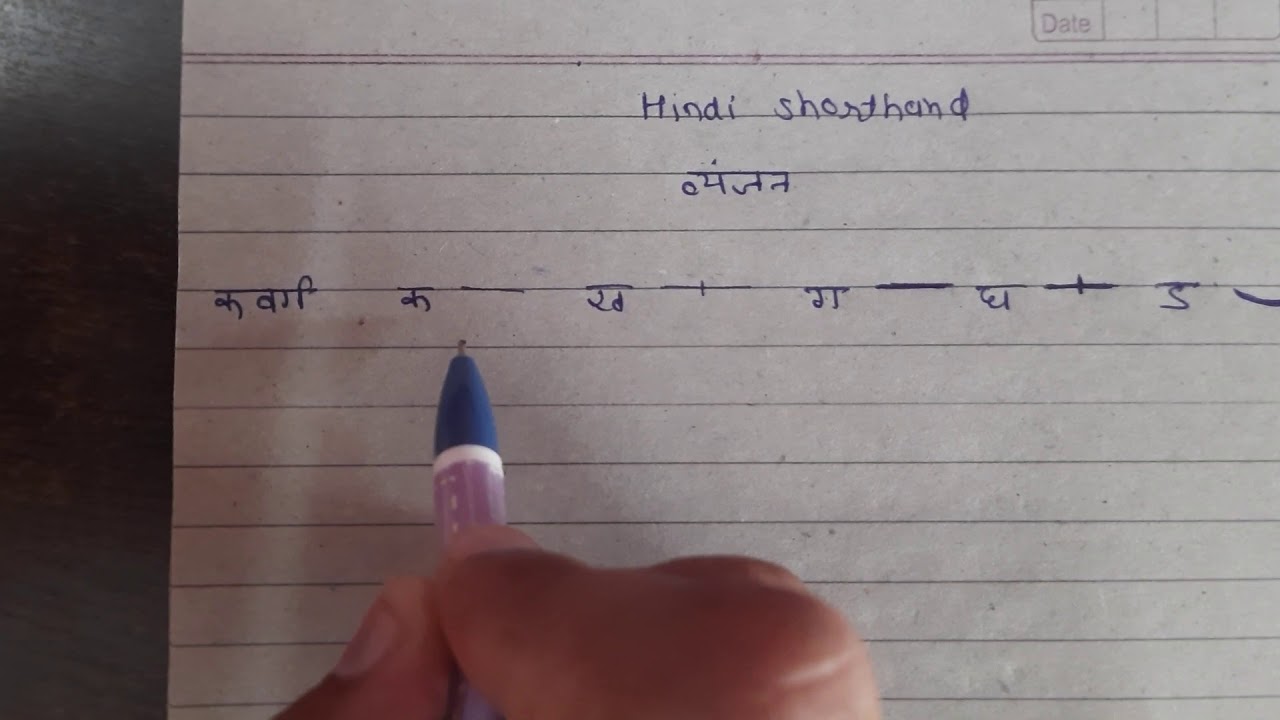 Date
Hindi shorthand
व्यंजन
क वर्ग क — ख ग — घ ड